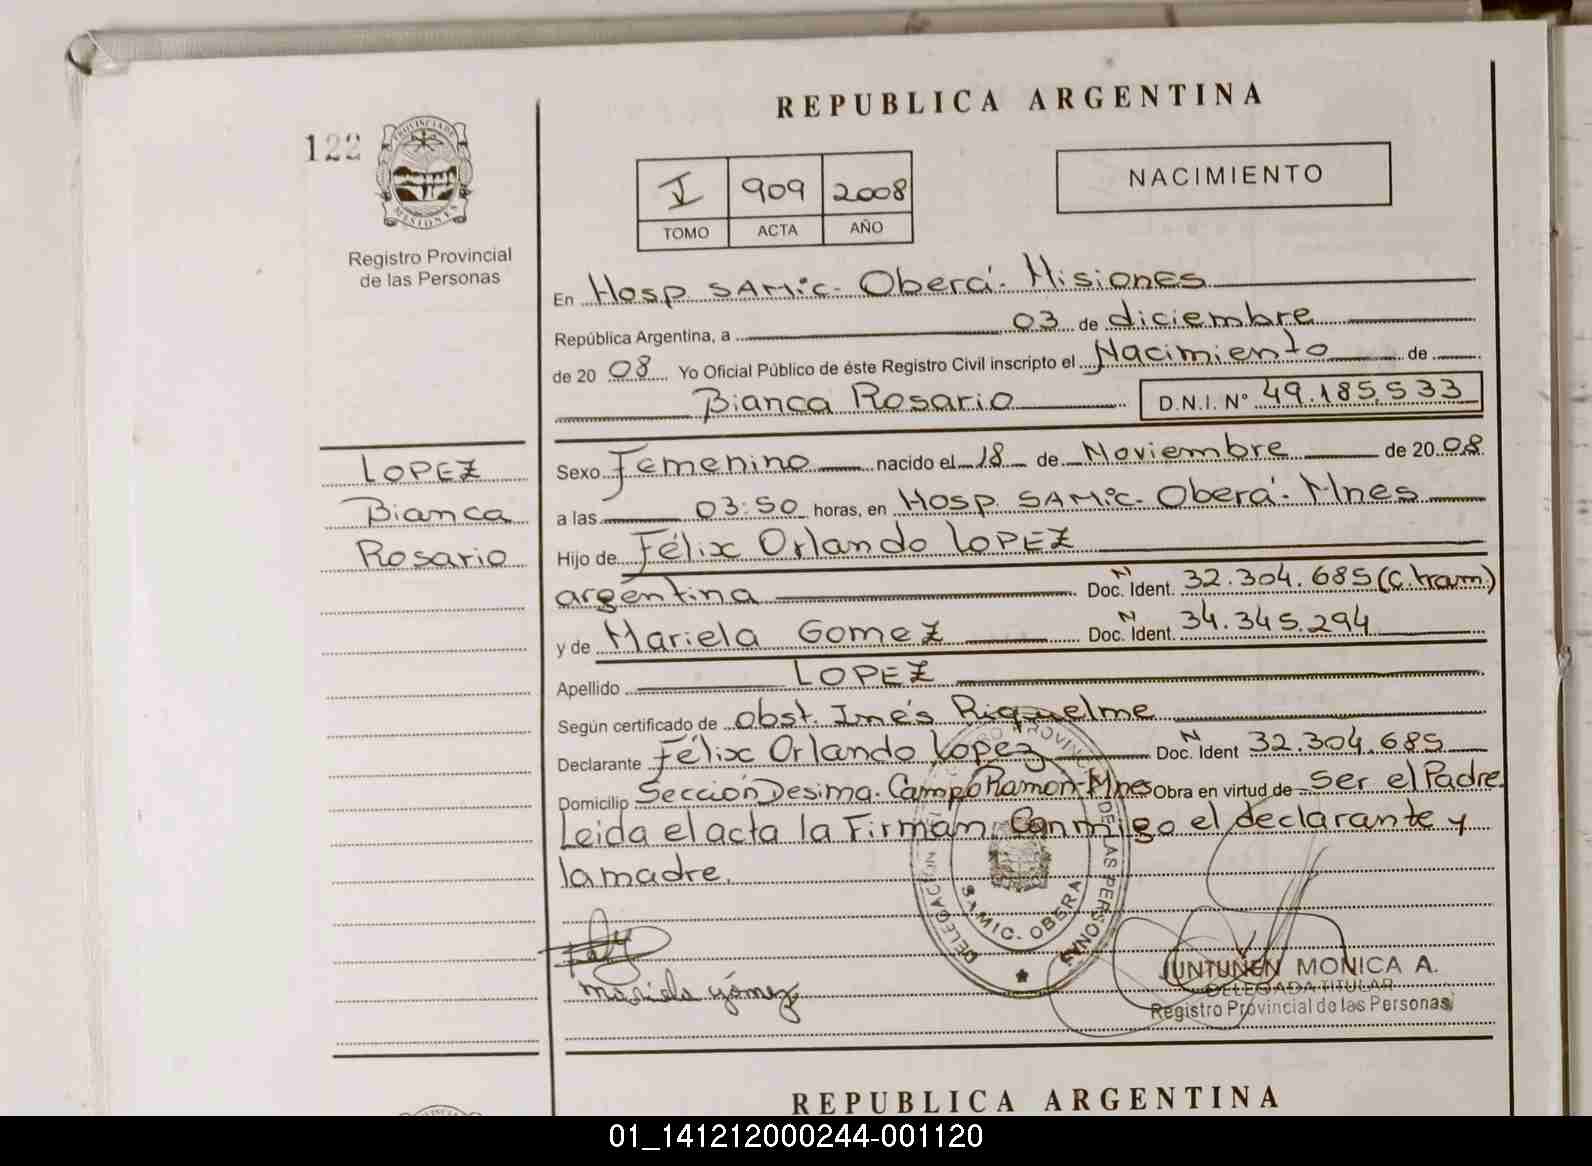 REPUBLICA ARGENTINA
122
PROVINCIA DE MISIONES
Registro Provincial
de las Personas
I 909 2008
TOMO ACTA AÑO
NACIMIENTO
En Hosp. SAMic. Oberá. Misiones
República Argentina, a 03 de diciembre
de 20 08 Yo Oficial Público de éste Registro Civil inscripto el Nacimiento de
Bianca Rosario D.N.I. N° 49.185.533
LOPEZ
Bianca
Rosario
Sexo Femenino nacido el 18 de Noviembre de 20 08
a las 03:50 horas, en Hosp. SAMic. Oberá. Mnes
Hijo de Félix Orlando LOPEZ
argentina Doc. Ident. N 32.304.685 (C. tram.)
y de Mariela GomeZ Doc. Ident. N 34.345.294
Apellido LOPEZ
Según certificado de obst. Inés Riquelme
Declarante Félix Orlando Lopez Doc. Ident N 32.304.685
Domicilio Sección Desima. Campo Ramón-Mnes Obra en virtud de Ser el Padre.
Leida el acta la Firman Conmigo el declarante y
la madre.
DELEGACION DE LAS PERSONAS
SAMIC. OBERA
Mariela gómez
JUNTUÑEN MONICA A.
DELEGADA TITULAR
Registro Provincial de las Personas
REPUBLICA ARGENTINA
01_141212000244-001120